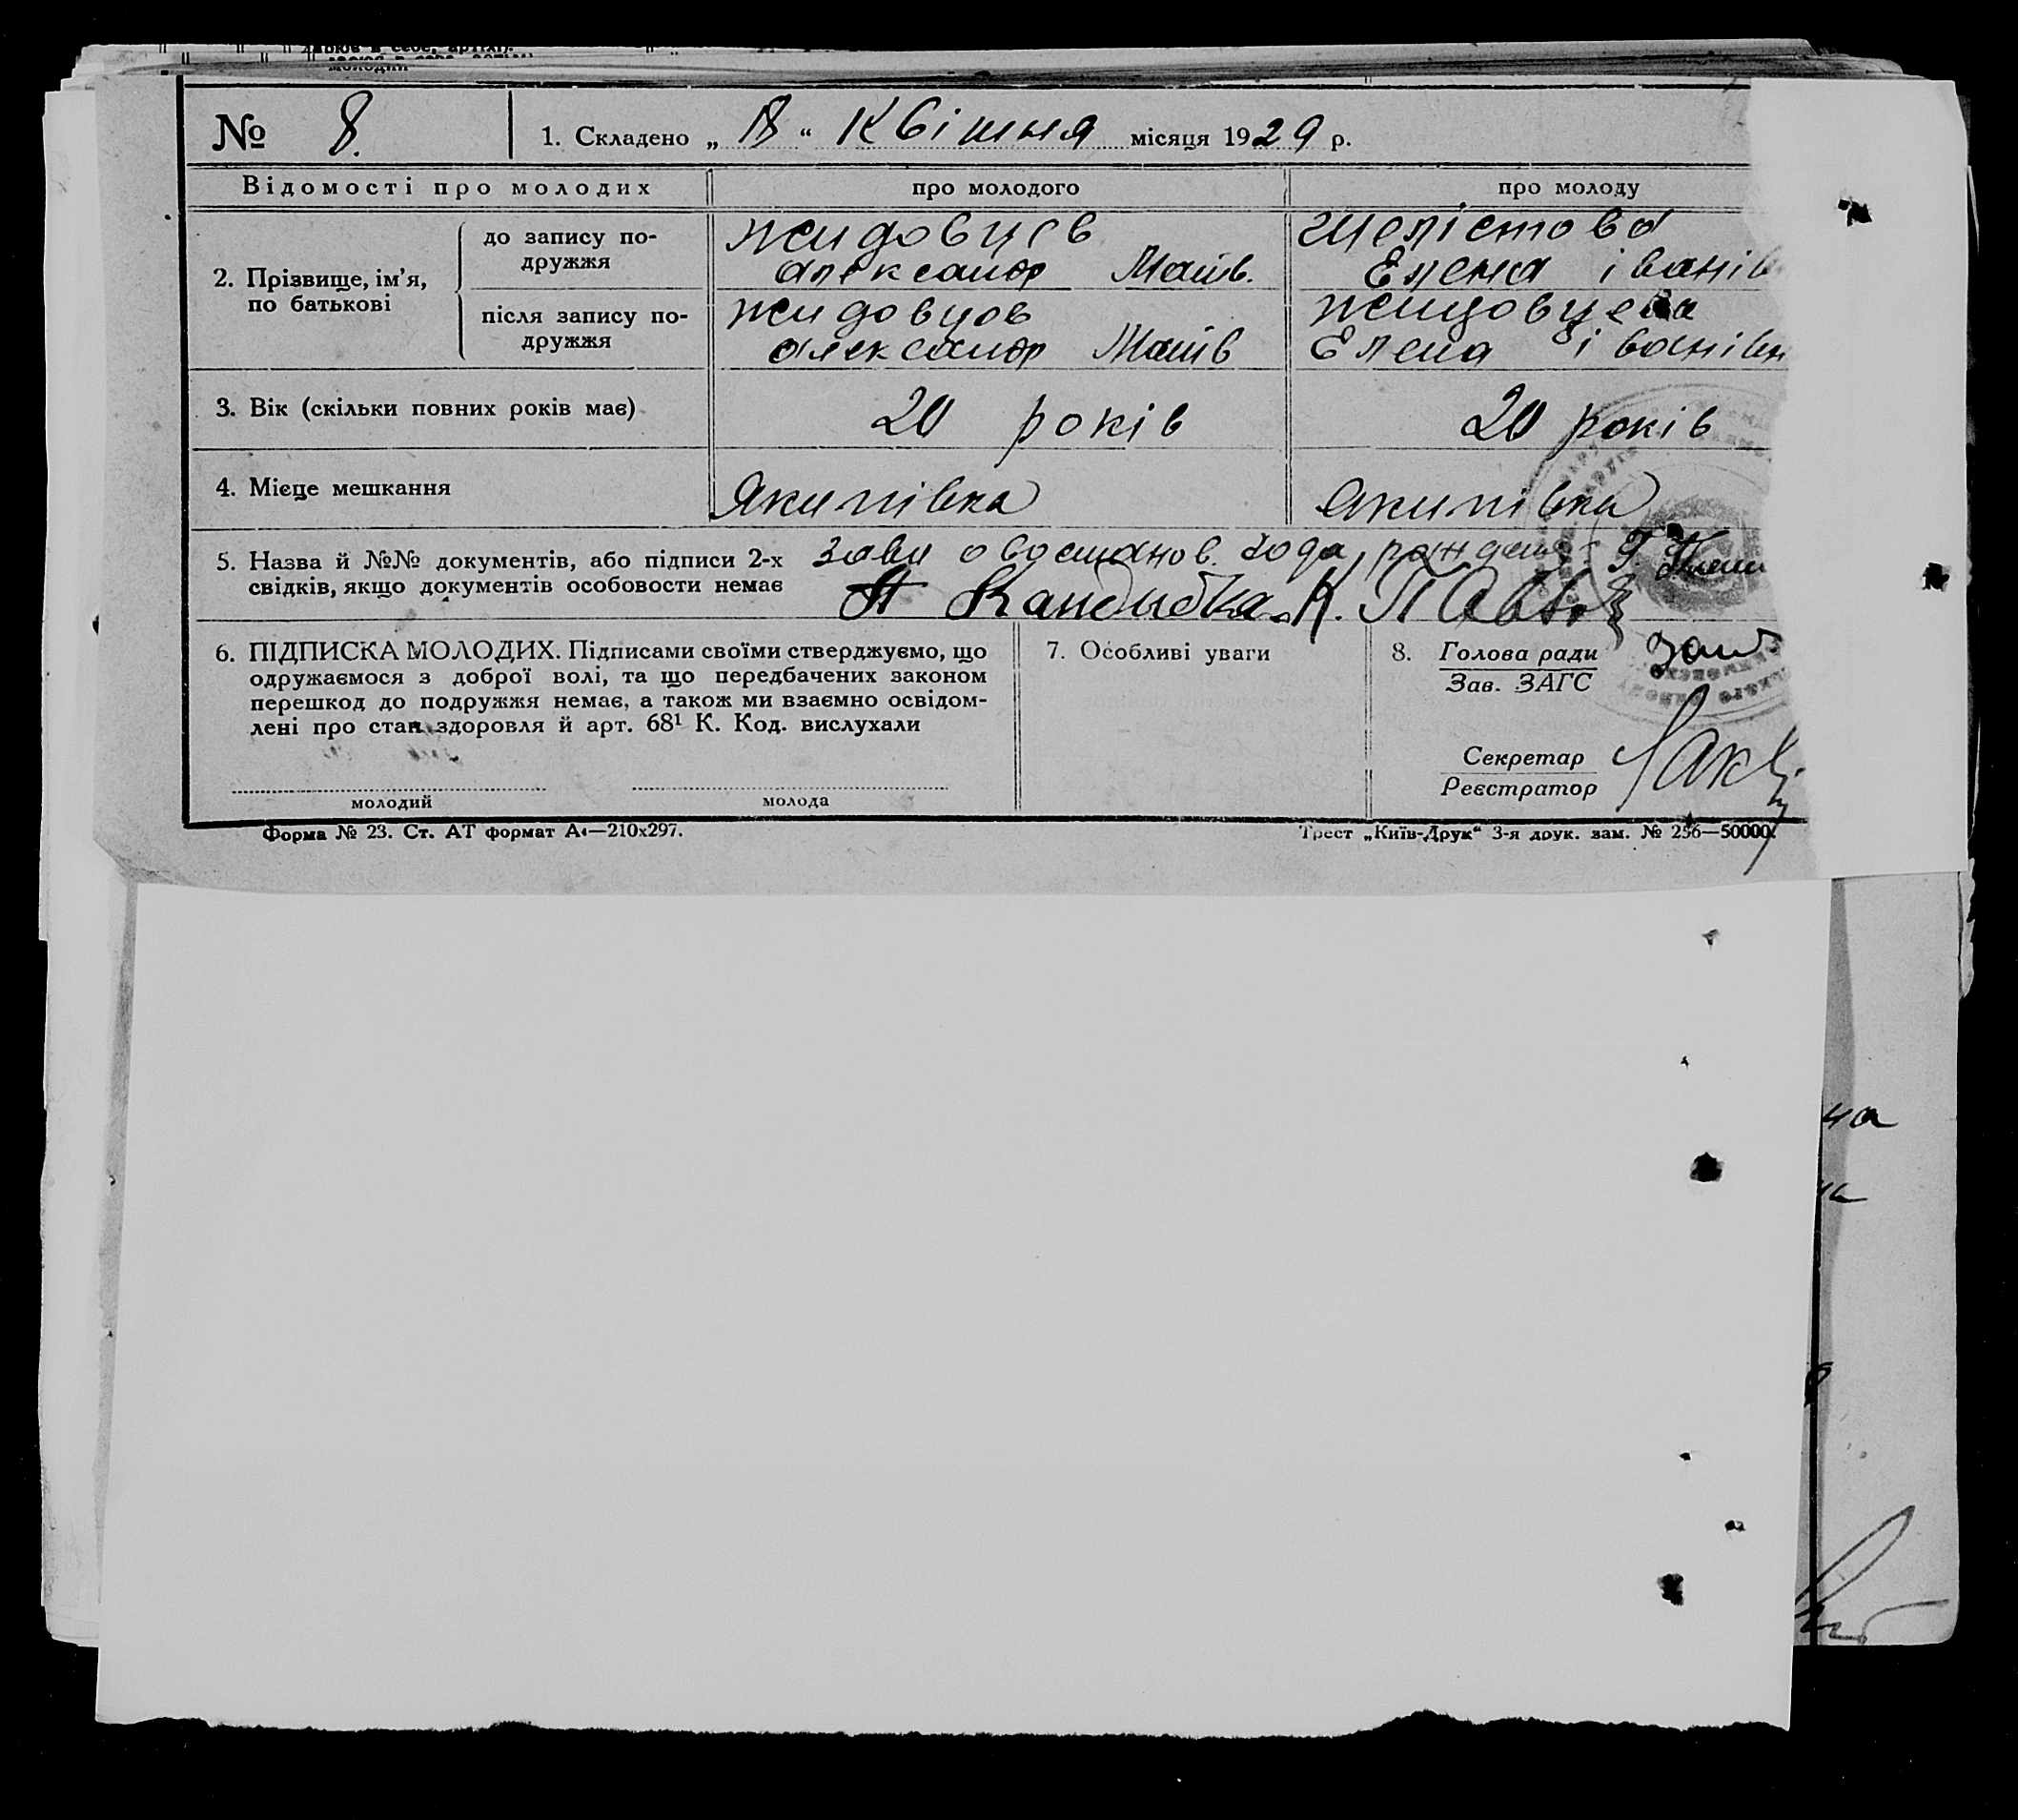 № 8. 1. Складено „ 18 “ Квітня місяця 1929 р.
Відомості про молодих про молодого про молоду
2. Прізвище, ім’я, по батькові
до запису по-
дружжя
Жидовцев
Александр Матв.
Щелістова
Елена іванів
після запису по-
дружжя
Жидовцов
Александр Матв
Жидовцева
Елена іванівн
3. Вік (скільки повних років має) 20 років 20 років
4. Місце мешкання Якипівка Якипівка
5. Назва й №№ документів, або підписи 2-х
свідків, якщо документів особовости немає
заяи о востанов. года рожден
Кандибка К. Павл
6. ПІДПИСКА МОЛОДИХ. Підписами своїми стверджуємо, що
одружаємося з доброї волі, та що передбачених законом
перешкод до подружжя немає, а також ми взаємно освідом-
лені про стан здоровля й арт. 68¹ К. Код. вислухали
молодий молода
7. Особливі уваги
8. Голова ради
Зав. ЗАГС
Секретар
Реєстратор
Форма № 23. Ст. АТ формат А4—210х297. Трест „Київ-Друк“ 3-я друк. зам. № 256—50000.